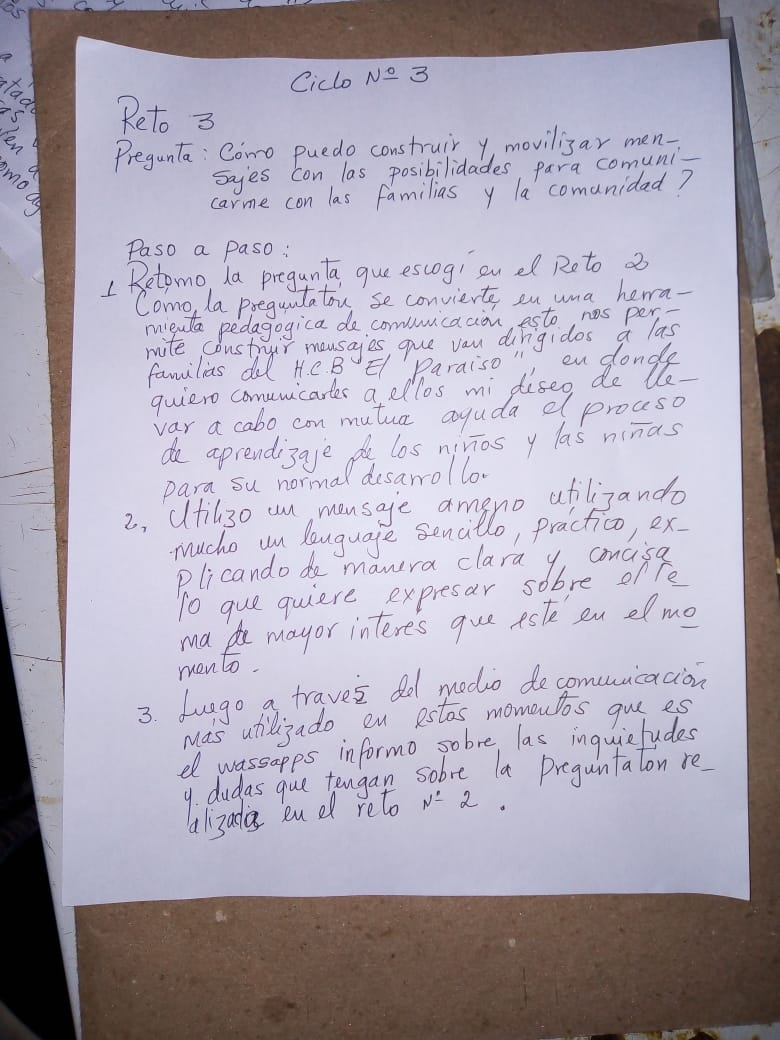 Ciclo Nº 3
Reto 3
Pregunta: Cómo puedo construir y movilizar men-
sajes con las posibilidades para comuni-
carme con las familias y la comunidad?
Paso a paso:
1 Retomo la pregunta que escogí en el Reto 2
Como la preguntaton se convierte en una herra-
mienta pedagogica de comunicación esto nos per-
mite construir mensajes que van dirigidos a las
familias del H.C.B "El Paraiso", en donde
quiero comunicarles a ellos mi deseo de lle-
var a cabo con mutua ayuda el proceso
de aprendizaje de los niños y las niñas
para su normal desarrollo.
2, Utilizo un mensaje ameno utilizando
mucho un lenguaje sencillo, práctico, ex-
plicando de manera clara y concisa
lo que quiere expresar sobre el te
ma de mayor interés que esté en el mo
mento.
3. Luego a través del medio de comunicación
más utilizado en estos momentos que es
el wassapps informo sobre las inquietudes
y dudas que tengan sobre la Preguntaton re-
alizada en el reto Nº 2.
atado
as
en a
omo ag